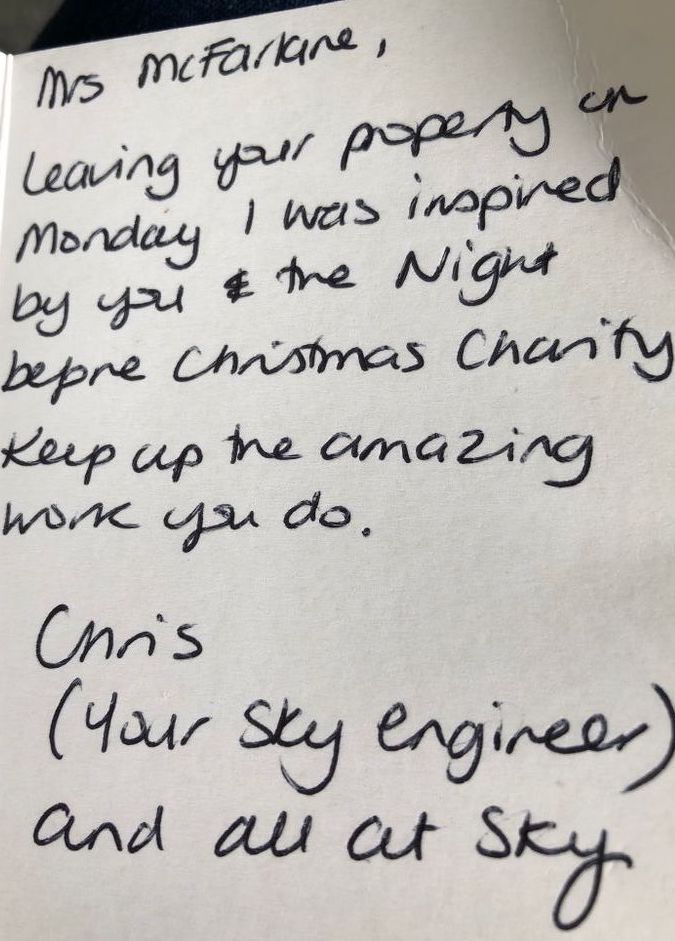 Mrs McFarlane,
Leaving your property on
Monday I was inspired
by you & the Night
before Christmas Charity
Keep up the amazing
work you do.
Chris
(Your Sky engineer)
and all at Sky